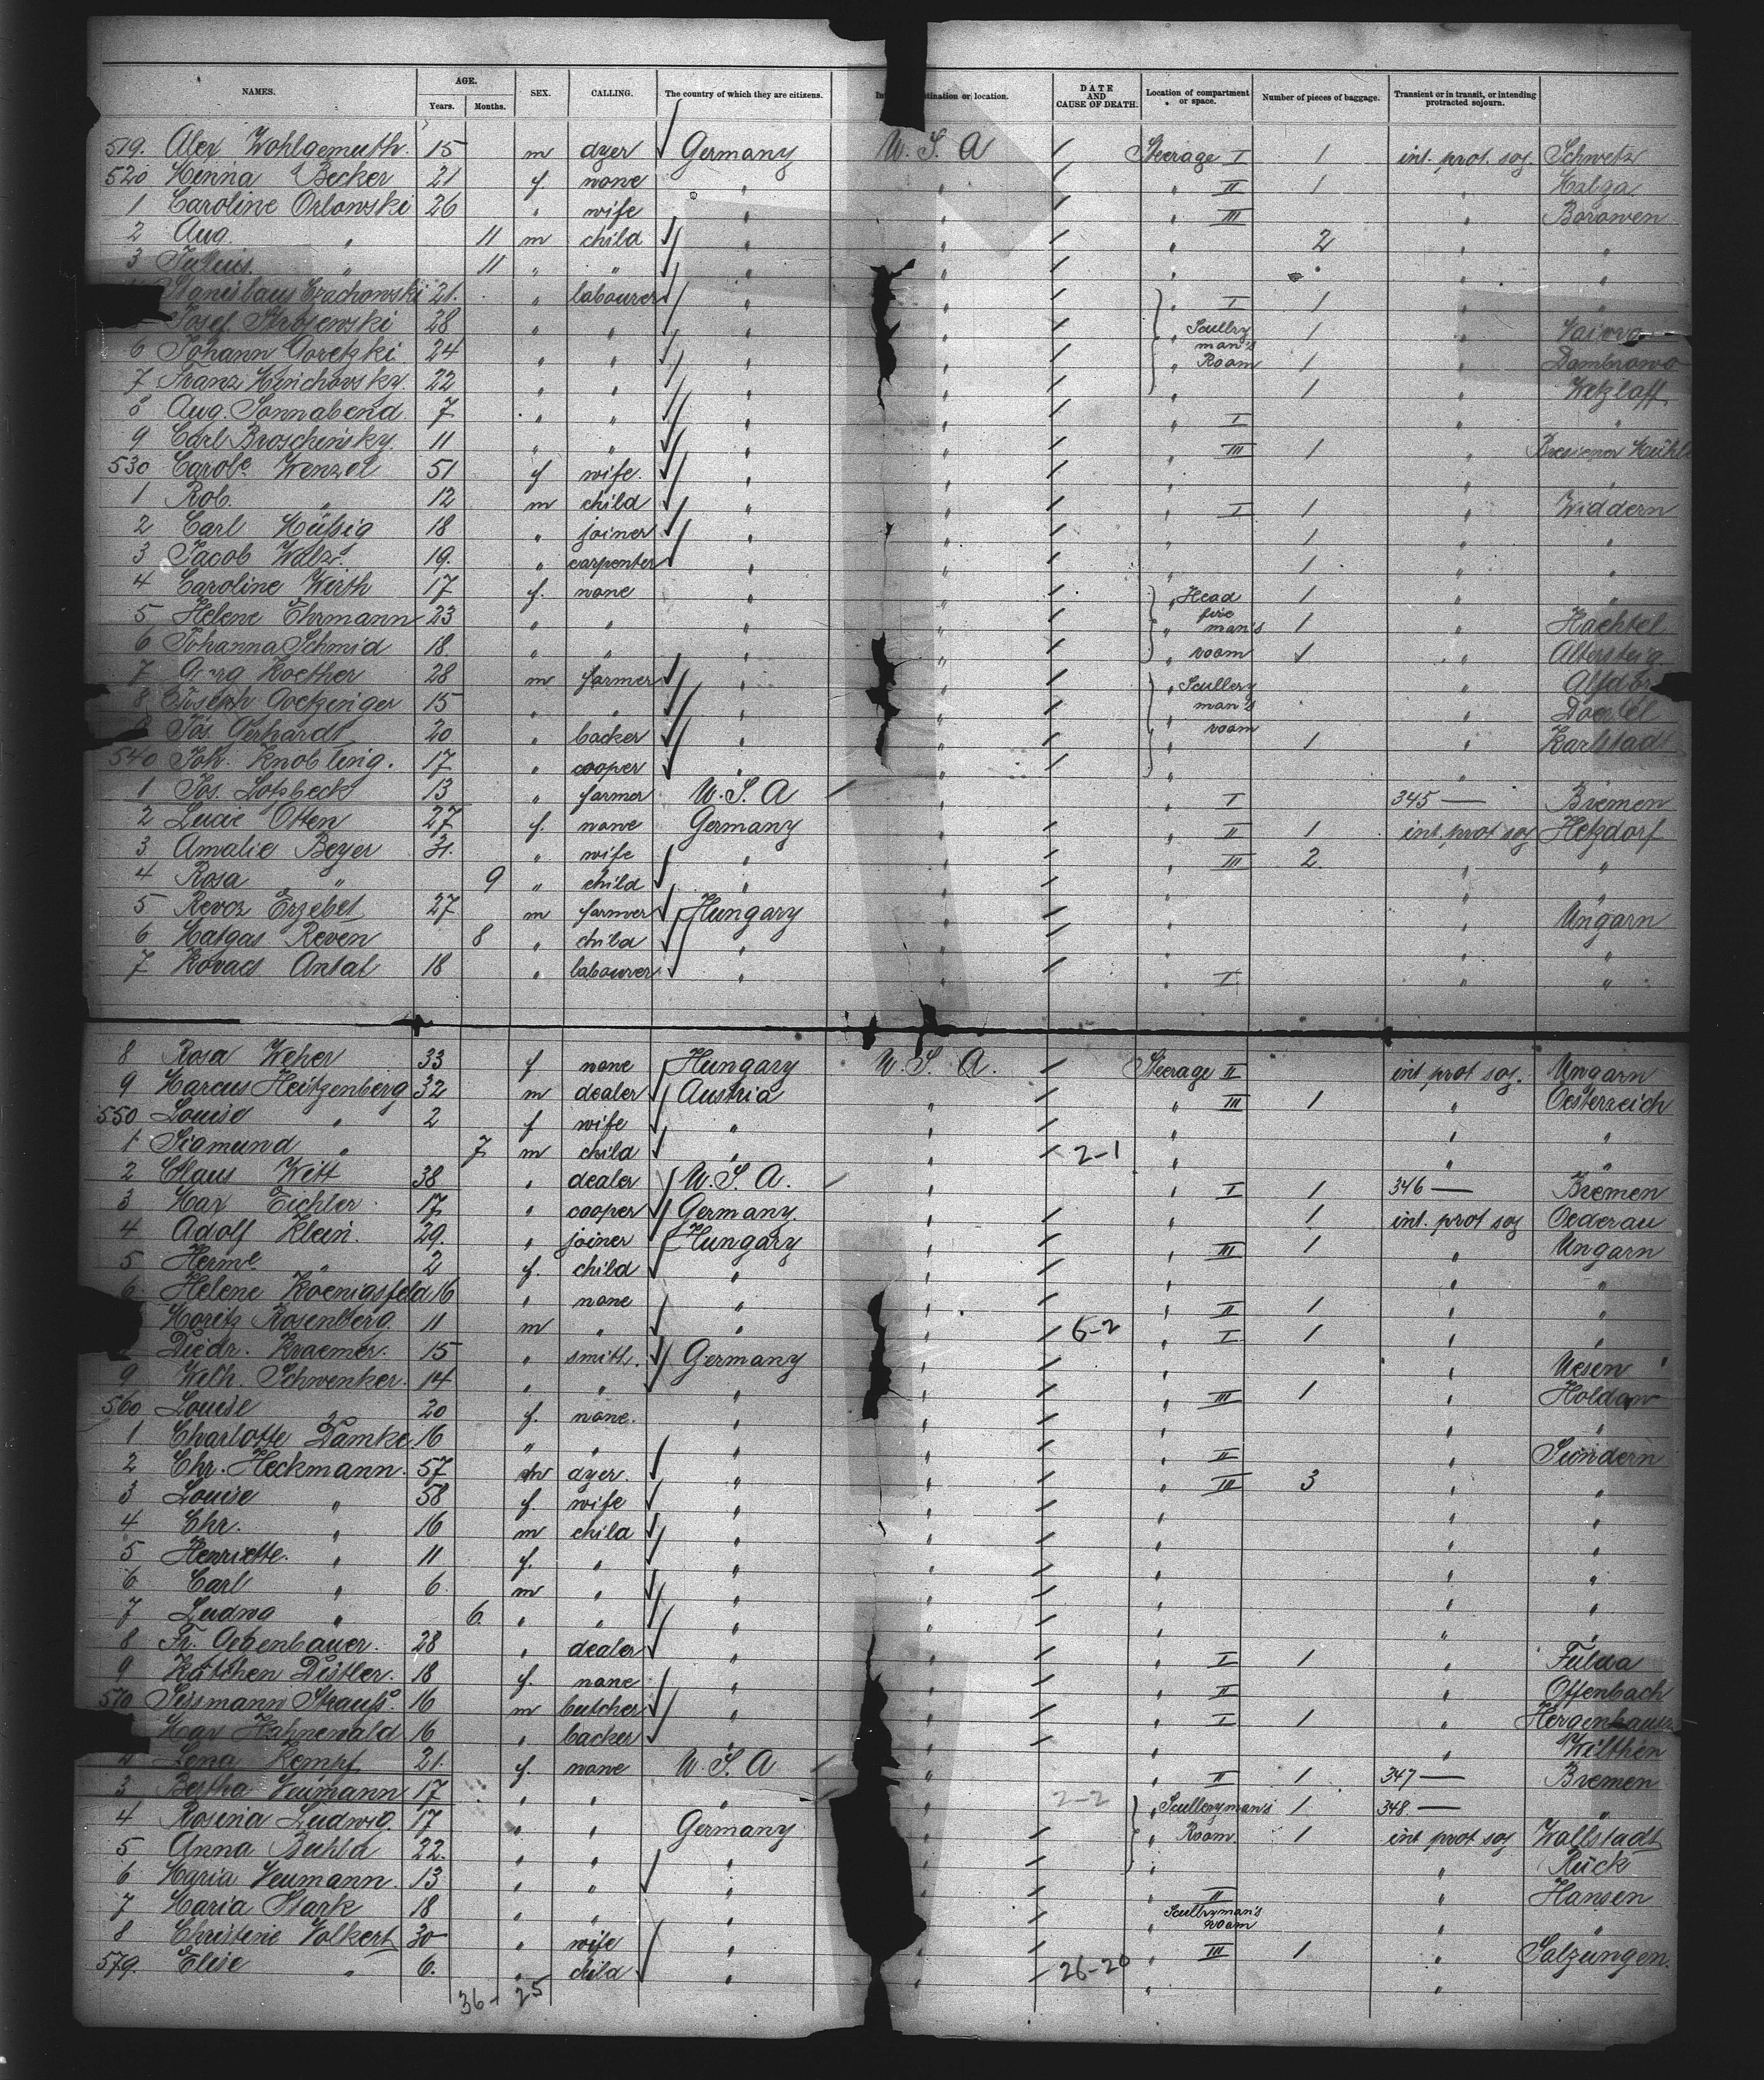 NAMES. AGE. Years. Months. SEX. CALLING. The country of which they are citizens. tination or location. DATE AND CAUSE OF DEATH. Location of compartment or space. Number of pieces of baggage. Transient or in transit, or intending protracted sojourn.
519. Alex Wohlgemuth. 15 m dyer Germany U. S. A Steerage I 1 int. prot. soj. Schwetz
520 Minna Becker 21 f. none " " " II 1 "
1 Caroline Orlowski 26 " wife " " " III " Borowen
2 Aug. " 11 m child " " " 2 " "
3 Julius. " 11 " " " " " "
Stanislaus Czachowski 21. " labourer " " " I 1 " "
Josef 28 " " " " " Scullry 1 "
6 Johann Goretzki 24 " " " " man's Room 1 " Dombrowo
7 Franz 22 " " " " " 1 " Wetzlaff
8 Aug. Sonnabend. 7 " " " " " I " "
9 Carl Broschinsky. 11 " " " " " III 1 "
530 Carole. Wenzel 51 f wife. " " " " "
1 Rob. " 12 m child " " " I 1 " Widdern
2 Carl Müssig 18 " joiner " " " 1 " "
3 Jacob Walz. 19. " carpenter " " " 1 " "
4 Caroline Wirth 17 f. none " " " Head 1 " "
5 Helene Ehrmann 23 " " " " fire man's 1 " Machtel
6 Johanna Schmid 18. " " " " " room 1 " Altersteig
7 Koether 28 m farmer " " " Scullery "
8 Joseph Goetzinger 15 " " " " man's "
Jos. Gerhardt 20 " backer " " " room 1 " Karlstadt
540 Joh. Knobling. 17 " cooper " " " "
1 Jos. Lotzbeck 13 " farmer U. S. A " " I 345 — Bremen
2 Lucie Otten 27 f. none Germany " " II 1 int. prot soj Hetzdorf
3 Amalie Beyer 31. " wife " " " III 2 " "
4 Rosa " 9 " child " " " " "
5 Revoz Erzebet 27 m farmer Hungary " " " Ungarn
6 Matgas Reven 8 " child " " " " "
7 Kovacs Antal 18 " labourer " " " I " "
8 Rosa Weher 33 f none Hungary U. S. A. Steerage II int prot soj. Ungarn
9 Marcus Heitzenberg 32 m dealer Austria " " III 1 " Oesterreich
550 Louise " 2 f wife " " " " "
1 Sigmund " 7 m child " " 2-1 " " "
2 Claus Witt 38 " dealer U. S. A. " " I 1 346 — Bremen
3 Max Eichler 17 " cooper Germany. " " 1 int. prot soj Oederau
4 Adolf Klein. 29. " joiner Hungary " " III 1 " Ungarn
5 Herme " 2 f. child " " " " "
6 Helene Koenigsfeld 16 " none " " " II 1 " "
Moritz Rosenberg. 11 m " " " 6-2 " I 1 " "
Diedr. Kraemer. 15 " smith. Germany " " " Uesen
9 Welh. Schwenker. 14 " " " " " III 1 " Holdam
560 Louise 20 f. none. " " " " "
1 Charlotte Damke 16 " " " " " II " Sundern
2 Chr. Heckmann. 57 m dyer. " " " III 3 " "
3 Louise " 58 f. wife " " " " "
4 Chr. " 16 m child " " " " "
5 Henriette. " 11 f. " " " " " "
6 Carl " 6. m " " " " " "
7 Ludwg " 6. " " " " " " "
8 Fr. Gegenbauer. 28 " dealer " " " I 1 " Fulda
9 Kätchen Distler. 18 f. none " " " II " Offenbach
570 Sissmann Strauss. 16 m butcher " " " I 1 "
Max Hahnewald 16 " backer " " " " Wilthen
Lena Kempf 21. f. none U. S. A " " II 1 347 — Bremen
3 Bertha Neumann 17 " " " " 2-2 " Sculleryman's 1 348. — "
4 Rosina Ludwig. 17 " " Germany " " Room. 1 int prot soj Wallstadt
5 Anna Buhla 22. " " " " " " Rück
6 Maria Neumann. 13 " " " " " II " Hansen
7 Maria Stark 18 " " " " " Scullryman's room " "
8 Christine Volkert 30 " wife " " " III 1 " Salzungen.
579. Elise " 6. " child " " 26-20 " "
36- 25